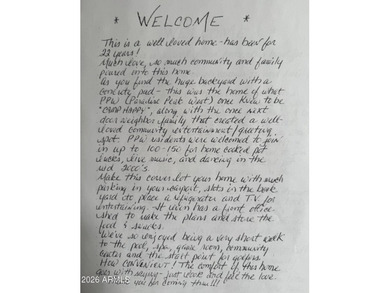 * WELCOME *
This is a well loved home - has been for
22 years!
Much love, so much community and family
poured into this home.
As you find the huge backyard with a
concrete pad - this was the home of what
PPW (Paradise Peak West) once knew to be
"CAMP HAPPY", along with the once next
door neighbor family that created a well-
loved community entertainment/greeting
spot. PPW residents were welcomed to join
in up to 100-150 for home cooked pot
lucks, live music, and dancing in the
mid 2000's.
Make this corner lot your home with much
parking in your carport, slots in the back
yard to place a refrigerator and TV for
entertaining. It even has a front office
shed to make the plans and store the
fuel & snacks.
We've so enjoyed being a very short walk
to the pool, spa, game room, community
center and the start point for golfers.
How CONVENIENT! The comfort of this home
goes with saying - just love and feel the love.
you for coming thru!!!
2026 ARMLS